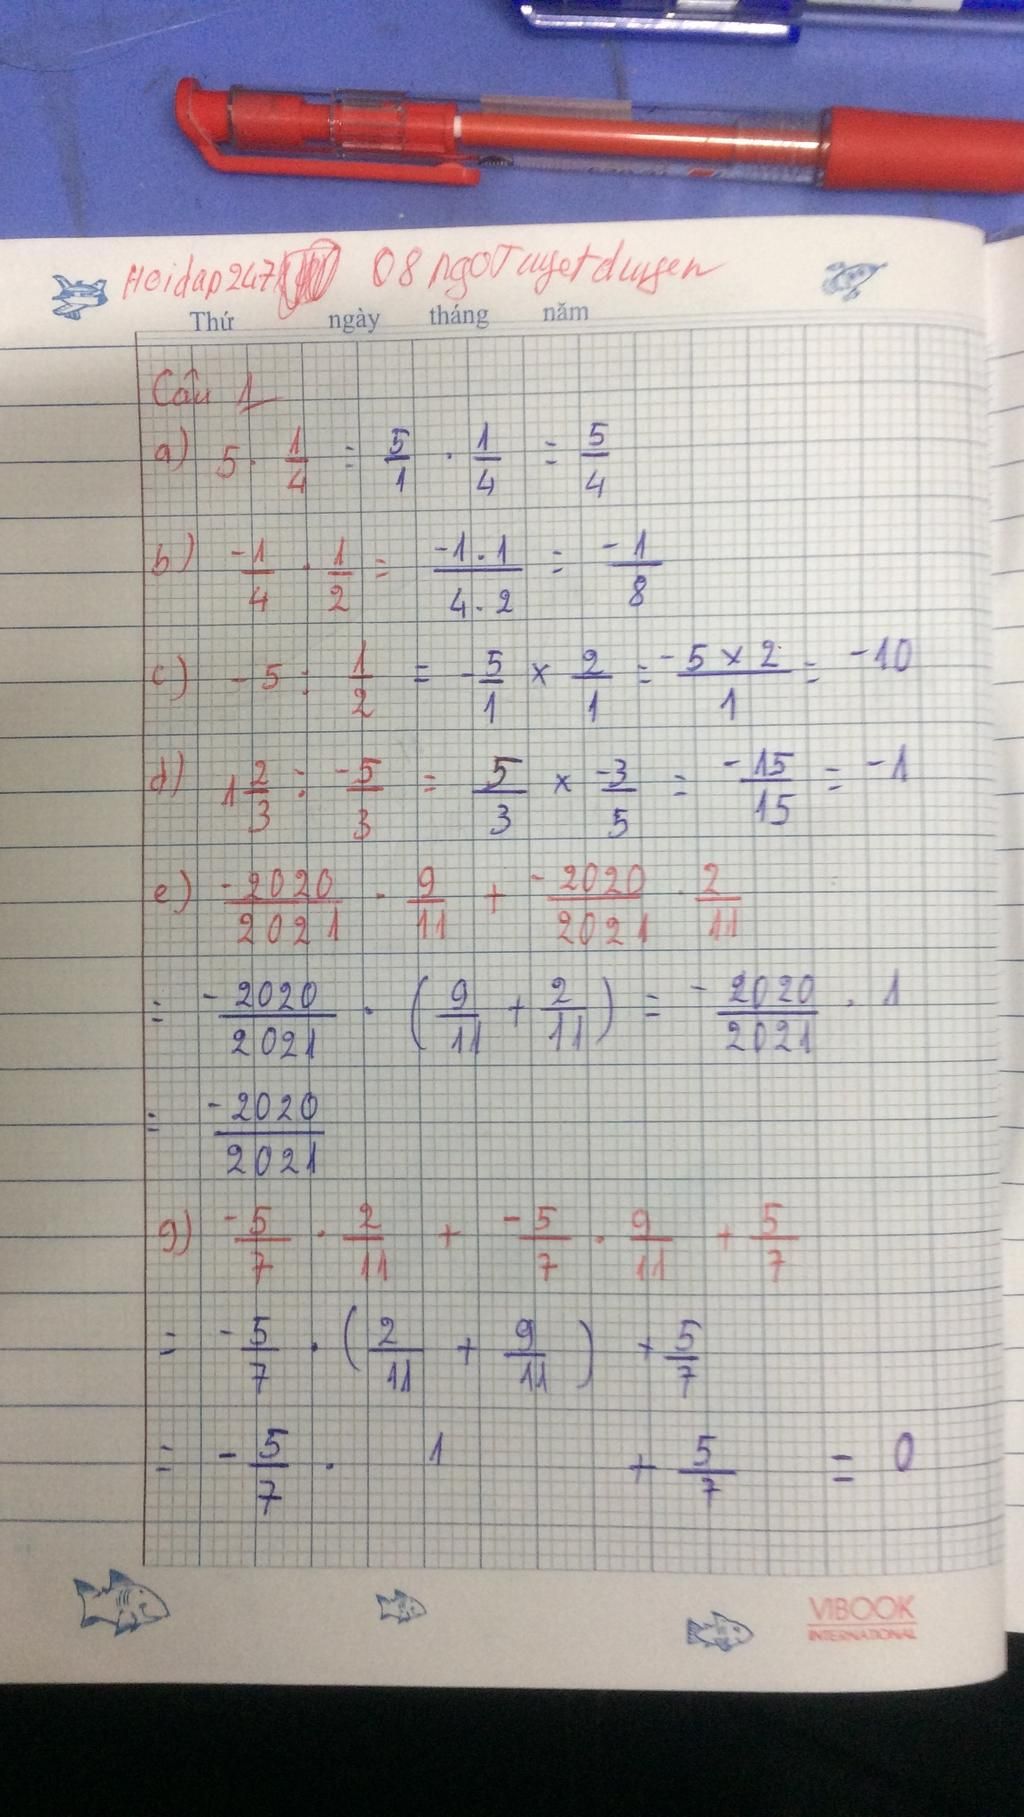 Hoidap247 08 ngoTuyetduyen
Thứ ngày tháng năm
Câu 1
a) 5 · 1/4 = 5/1 · 1/4 = 5/4
b) -1/4 · 1/2 = -1·1/4·2 = -1/8
c) -5 : 1/2 = -5/1 × 2/1 = -5×2/1 = -10
d) 1 2/3 : -5/3 = 5/3 × -3/5 = -15/15 = -1
e) -2020/2021 · 9/11 + -2020/2021 · 2/11
= -2020/2021 · (9/11 + 2/11) = -2020/2021 · 1
= -2020/2021
g) -5/7 · 2/11 + -5/7 · 9/11 + 5/7
= -5/7 · (2/11 + 9/11) + 5/7
= -5/7 · 1 + 5/7 = 0
VIBOOK
INTERNATIONAL